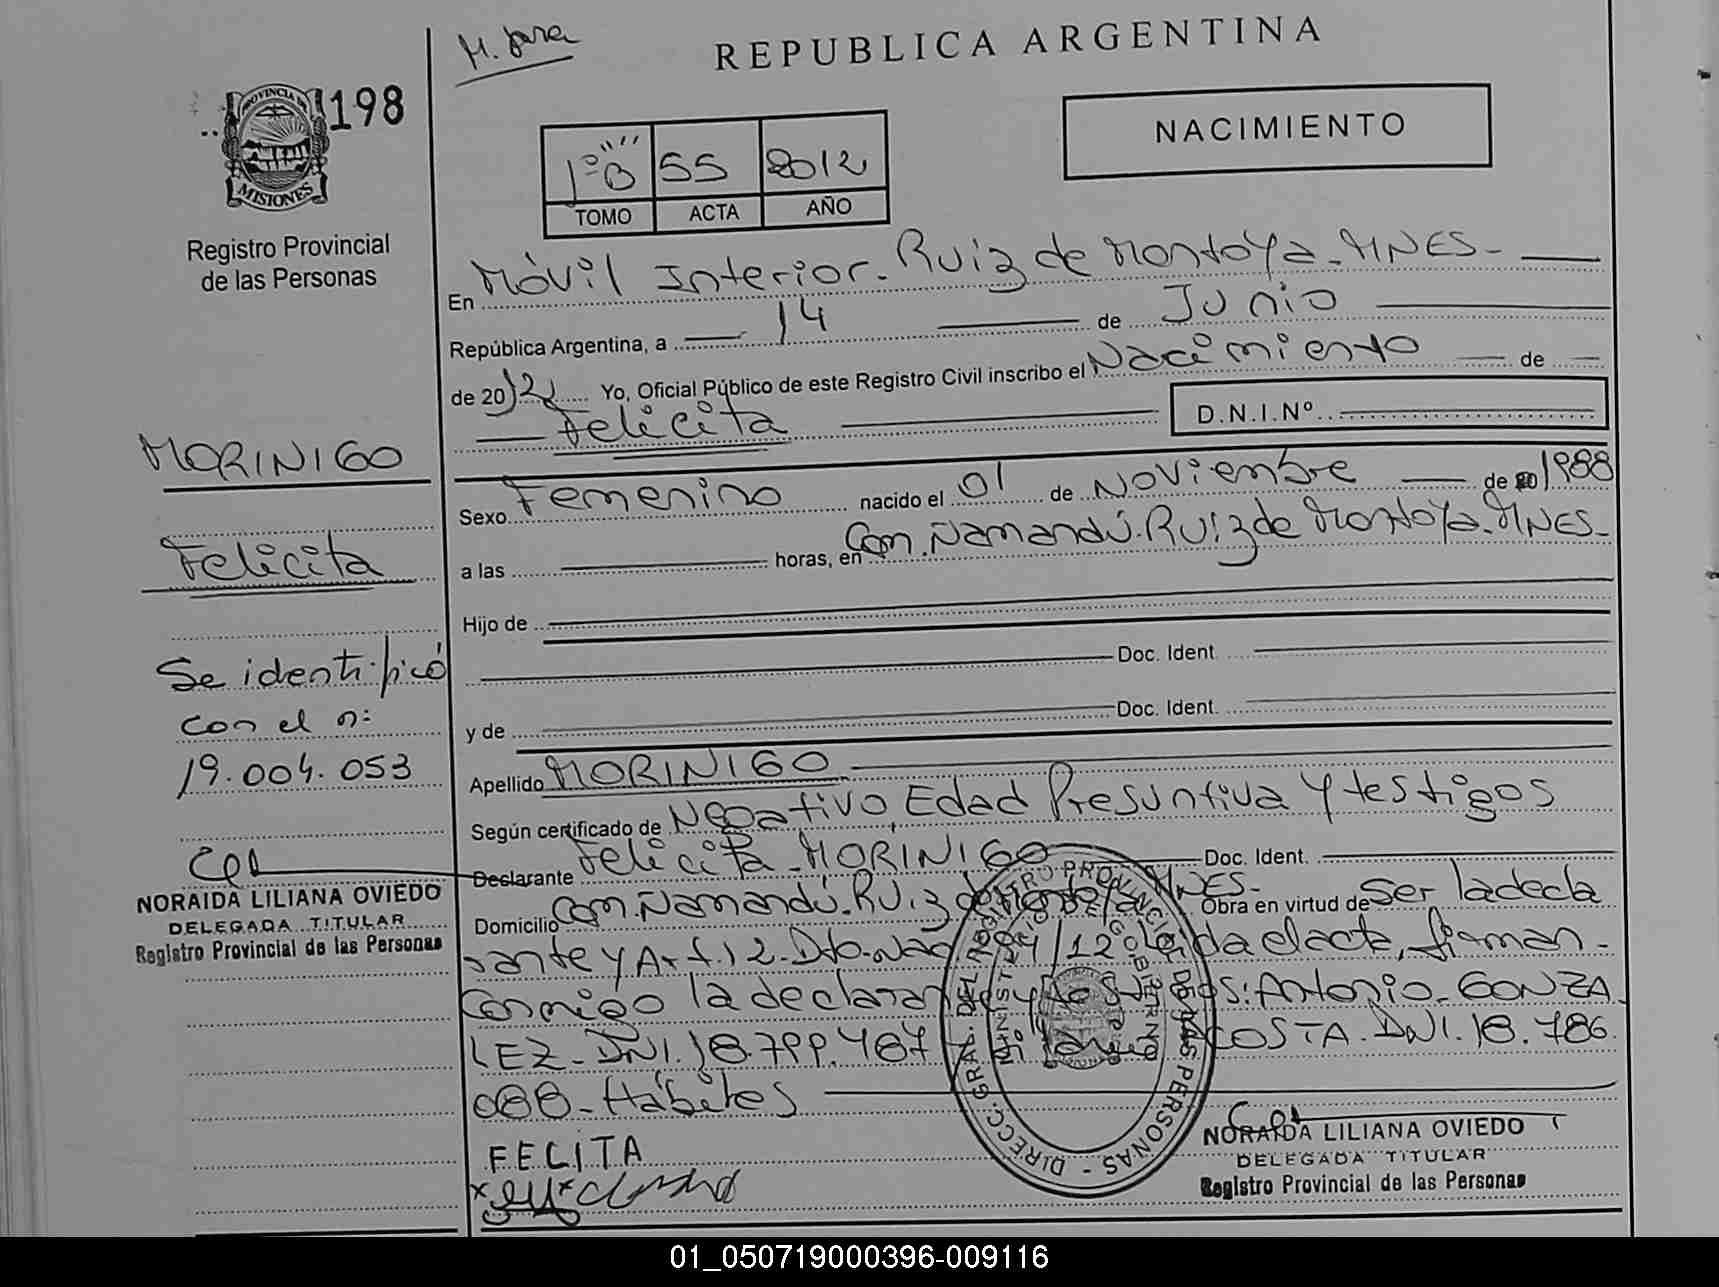 M. Jara
REPUBLICA ARGENTINA
PROVINCIA DE
MISIONES
198
Registro Provincial
de las Personas
1º "B" 55 2012
TOMO ACTA AÑO
NACIMIENTO
En Móvil Interior. Ruiz de Montoya. MNES.
República Argentina, a 14 de Junio
de 2012 Yo, Oficial Público de este Registro Civil inscribo el Nacimiento de
Felicita D.N.I.Nº
Sexo Femenino nacido el 01 de Noviembre de 20 1988
a las horas, en Com. Ñamandú. Ruiz de Montoya. MNES.
Hijo de
Doc. Ident.
y de Doc. Ident.
Apellido MORINIGO
Según certificado de Negativo, Edad Presuntiva y testigos
Declarante Felicita MORINIGO Doc. Ident.
Domicilio Com. Ñamandú. Ruiz de Montoya MNES. Obra en virtud de Ser la decla
rante y Art. 12. Dto. Nac. 994/12 Leída el acta, firman
conmigo la declarante y testigos: Antonio. GONZA
LEZ. DNI. 18.799.487 COSTA. DNI. 18.786.
088. Hábiles
FELITA
NORAIDA LILIANA OVIEDO
DELEGADA TITULAR
Registro Provincial de las Personas
DIRECC. GRAL. DEL REGISTRO PROVINCIAL DE LAS PERSONAS
MINISTERIO DE GOBIERNO
MORINIGO
Felicita
Se identificó
con el nº:
19.004.053
NORAIDA LILIANA OVIEDO
DELEGADA TITULAR
Registro Provincial de las Personas
01_050719000396-009116